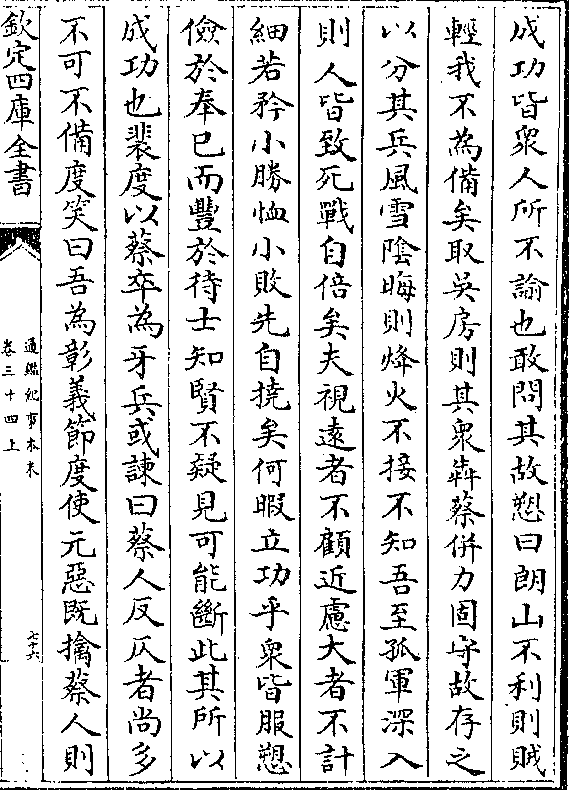 成功皆衆人所不諭也敢問其故愬曰朗山不利則賊
輕我不為備矣取吳房則其衆犇蔡併力固守故存之
以分其兵風雪陰晦則烽火不接不知吾至孤軍深入
則人皆致死戰自倍矣夫視逺者不顧近慮大者不計
細若矜小勝恤小敗先自撓矣何暇立功乎衆皆服愬
儉於奉已而豐於待士知賢不疑見可能斷此其所以
成功也裴度以蔡卒為牙兵或諫曰蔡人反仄者尚多
不可不備度笑曰吾為彰義節度使元惡既擒蔡人則
欽定四庫全書
通鑑紀事本末
卷三十四上
七十六